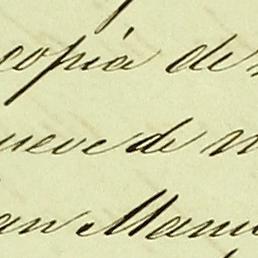 copia de
ueve de n
an Manu